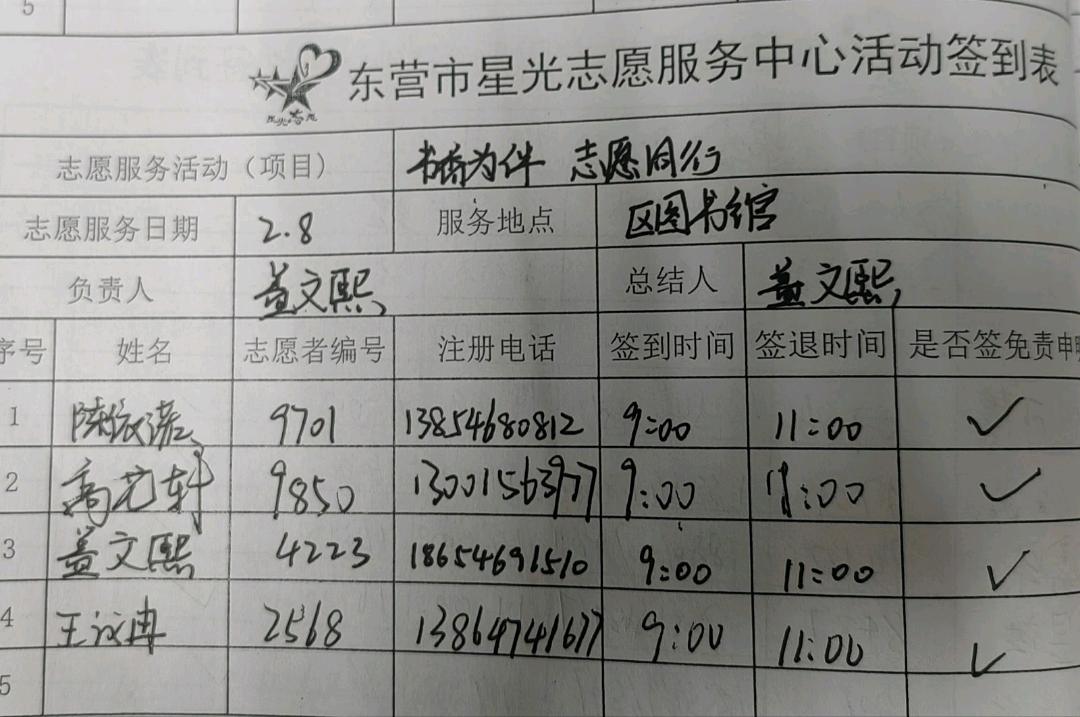 5
星光志愿
东营市星光志愿服务中心活动签到表
志愿服务活动（项目） 书香为伴 志愿同行
志愿服务日期 2.8 服务地点 区图书馆
负责人 盖文熙 总结人 盖文熙
序号 姓名 志愿者编号 注册电话 签到时间 签退时间 是否签免责申明
1 陈依诺 9701 13854680812 9:00 11:00 ✓
2 高艺轩 9850 13001563977 9:00 11:00 ✓
3 盖文熙 4223 18654691510 9:00 11:00 ✓
4 王议冉 2568 13864741677 9:00 11:00 ✓
5